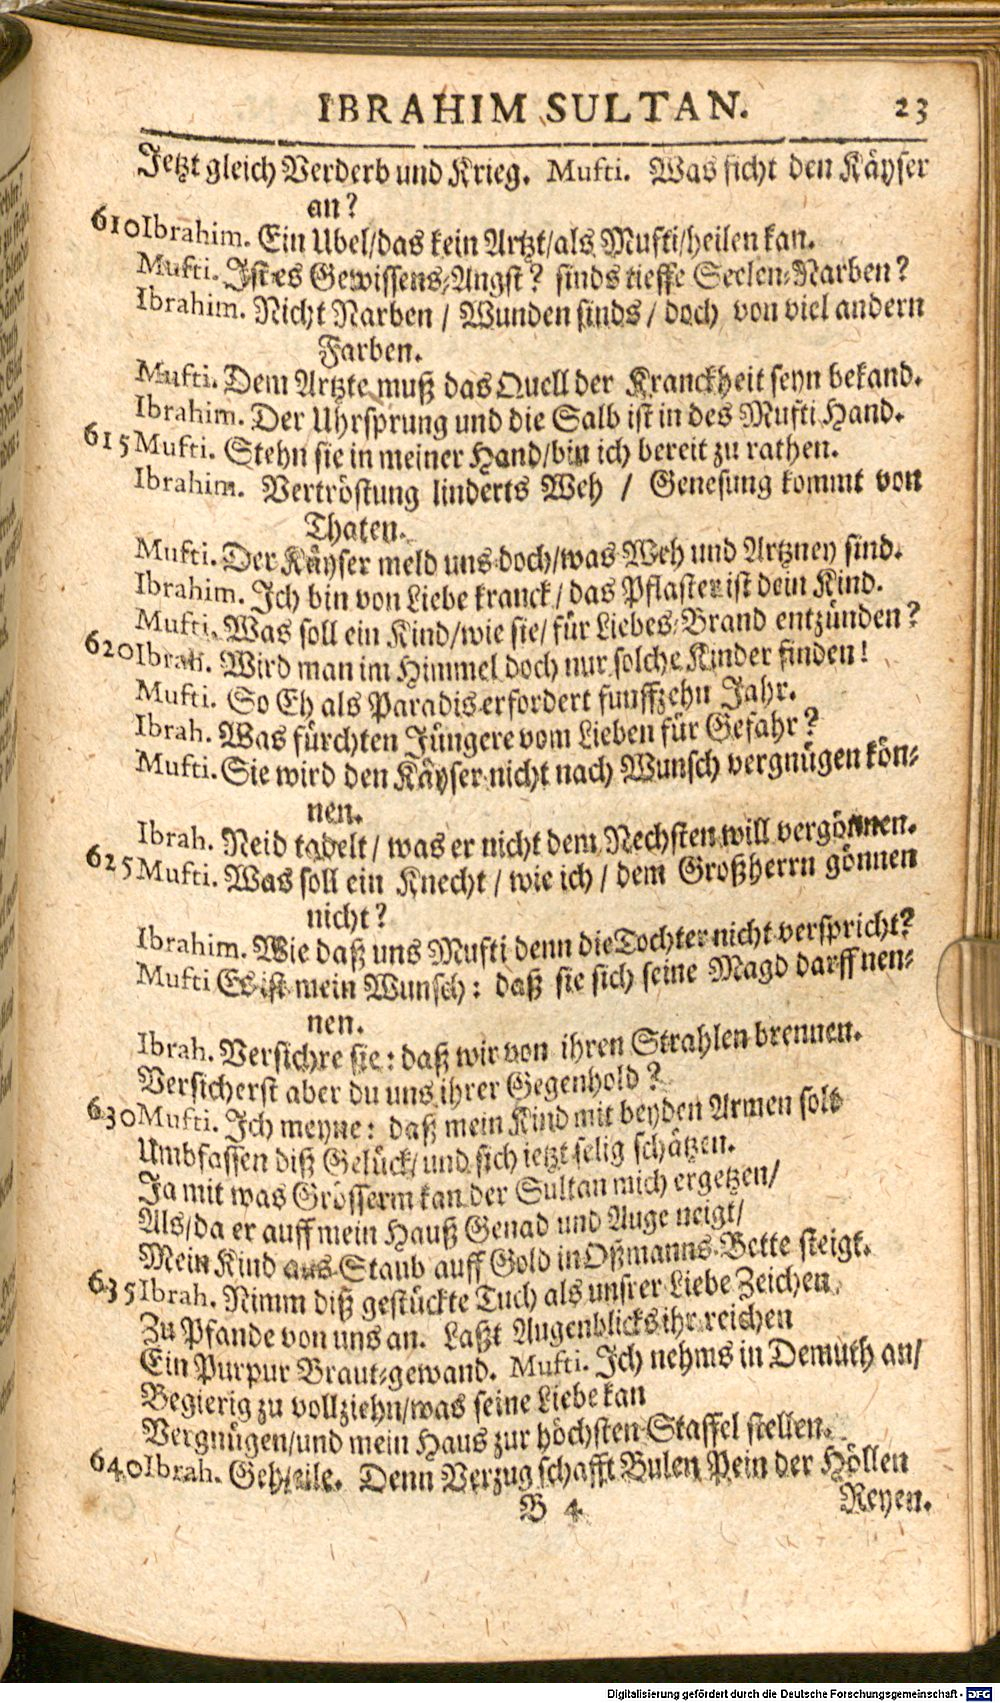 IBRAHIM SULTAN. 23
Jetzt gleich Verderb und Krieg. Mufti. Was ficht den Käyser
an?
610 Ibrahim. Ein Ubel/das kein Artzt/als Mufti/heilen kan.
Mufti. Ist es Gewissens-Angst? sinds tieffe Seelen-Narben?
Ibrahim. Nicht Narben / Wunden sinds / doch von viel andern
Farben.
Mufti. Dem Artzte muß das Quell der Kranckheit seyn bekand.
Ibrahim. Der Uhrsprung und die Salb ist in des Mufti Hand.
615 Mufti. Stehn sie in meiner Hand/bin ich bereit zu rathen.
Ibrahim. Vertröstung linderts Weh / Genesung kommt von
Thaten.
Mufti. Der Käyser meld uns doch/was Weh und Artzney sind.
Ibrahim. Ich bin von Liebe kranck / das Pflaster ist dein Kind.
Mufti. Was soll ein Kind/wie sie/ für Liebes-Brand entzünden?
620 Ibrah. Wird man im Himmel doch nur solche Kinder finden!
Mufti. So Eh als Paradis erfordert funffzehn Jahr.
Ibrah. Was fürchten Jüngere vom Lieben für Gefahr?
Mufti. Sie wird den Käyser nicht nach Wunsch vergnügen kön-
nen.
Ibrah. Neid tadelt / was er nicht dem Nechsten will vergönnen.
625 Mufti. Was soll ein Knecht / wie ich / dem Großherrn gönnen
nicht?
Ibrahim. Wie daß uns Mufti denn die Tochter nicht verspricht?
Mufti Es ist mein Wunsch: daß sie sich seine Magd darff nen-
nen.
Ibrah. Versichre sie: daß wir von ihren Strahlen brennen.
Versicherst aber du uns ihrer Gegenhold?
630 Mufti. Ich meyne: daß mein Kind mit beyden Armen solt
Umbfassen diß Gelück/ und sich jetzt selig schätzen.
Ja mit was Grösserm kan der Sultan mich ergetzen/
Als/da er auff mein Hauß Genad und Auge neigt/
Mein Kind aus Staub auff Gold in Oßmanns Bette steigt.
635 Ibrah. Nimm diß gestückte Tuch als unsrer Liebe Zeichen
Zu Pfande von uns an. Laßt Augenblicks ihr reichen
Ein Purpur Braut-gewand. Mufti. Ich nehms in Demuth an/
Begierig zu vollziehn/was seine Liebe kan
Vergnügen/und mein Haus zur höchsten Staffel stellen.
640 Ibrah. Geh/eile. Denn Verzug schafft Bulen Pein der Höllen
B 4 Reyen.
Digitalisierung gefördert durch die Deutsche Forschungsgemeinschaft - DFG